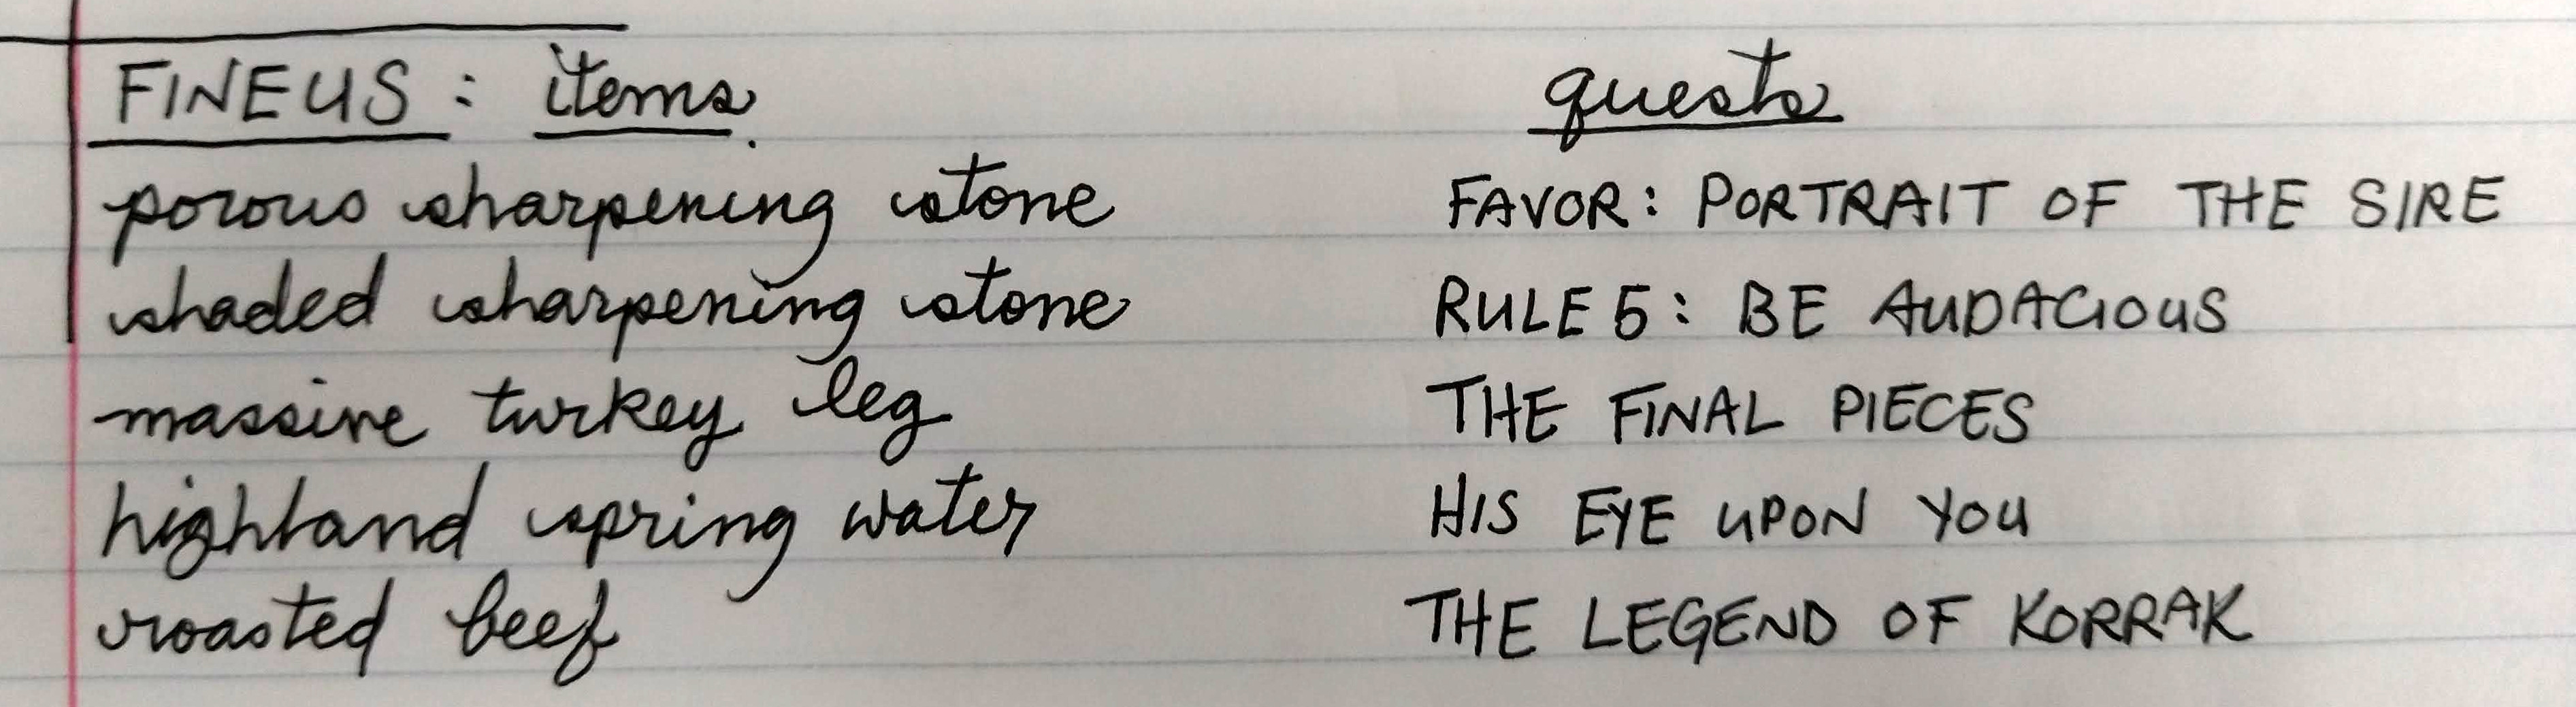 FINEUS: items. quests
porous sharpening stone FAVOR: PORTRAIT OF THE SIRE
shaded sharpening stone RULE 5: BE AUDACIOUS
massive turkey leg THE FINAL PIECES
highland spring water HIS EYE UPON YOU
roasted beef THE LEGEND OF KORRAK